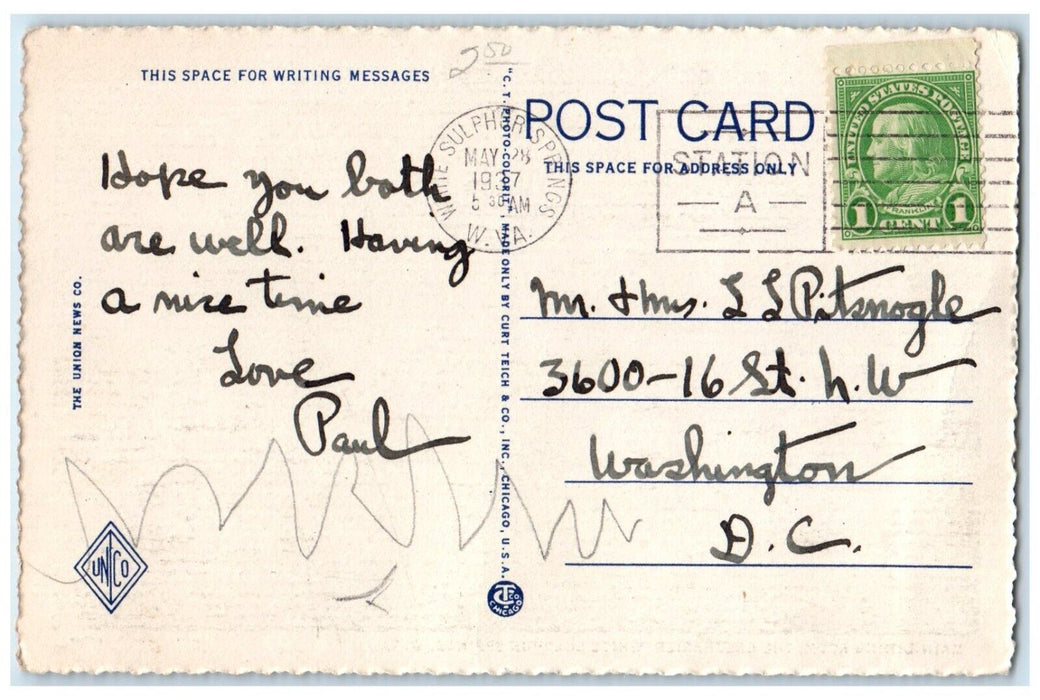 2 50
THIS SPACE FOR WRITING MESSAGES
Hope you both
are well. Having
a nice time
Love
Paul
THE UNION NEWS CO.
UNICO
"C. T. PHOTO-COLORIT" MADE ONLY BY CURT TEICH & CO., INC., CHICAGO, U.S.A.
CHICAGO
WHITE SULPHUR SPRINGS
MAY 28
1937
5 30 AM
W. VA.
POST CARD
THIS SPACE FOR ADDRESS ONLY
STATION
A
UNITED STATES POSTAGE
FRANKLIN
1 CENT 1
Mr. & Mrs. L L Pitsnogle
3600-16 St. N.W
Washington
D.C.